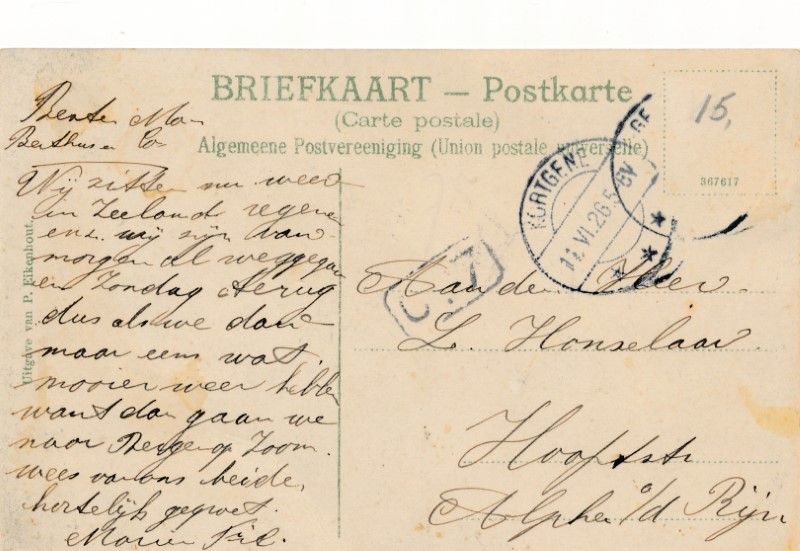 BRIEFKAART — Postkarte
(Carte postale)
Algemeene Postvereeniging (Union postale universelle)
15,
367617
KORTGENE
11.VI.26.5-6V
Uitgave van P. Elkenhout.
Wij zitten nu weer
in Zeelands regenen
enz. wij zijn van
morgen al weggegaan
en Zondag terug
dus als we dan
maar eens wat
mooier weer hebben
want dan gaan we
naar Bergen op Zoom.
wees van ons beide,
hartelijk gegroet.
Aan den Heer
L. Honselaar.
Hooftstr
Alphen a/d Rijn